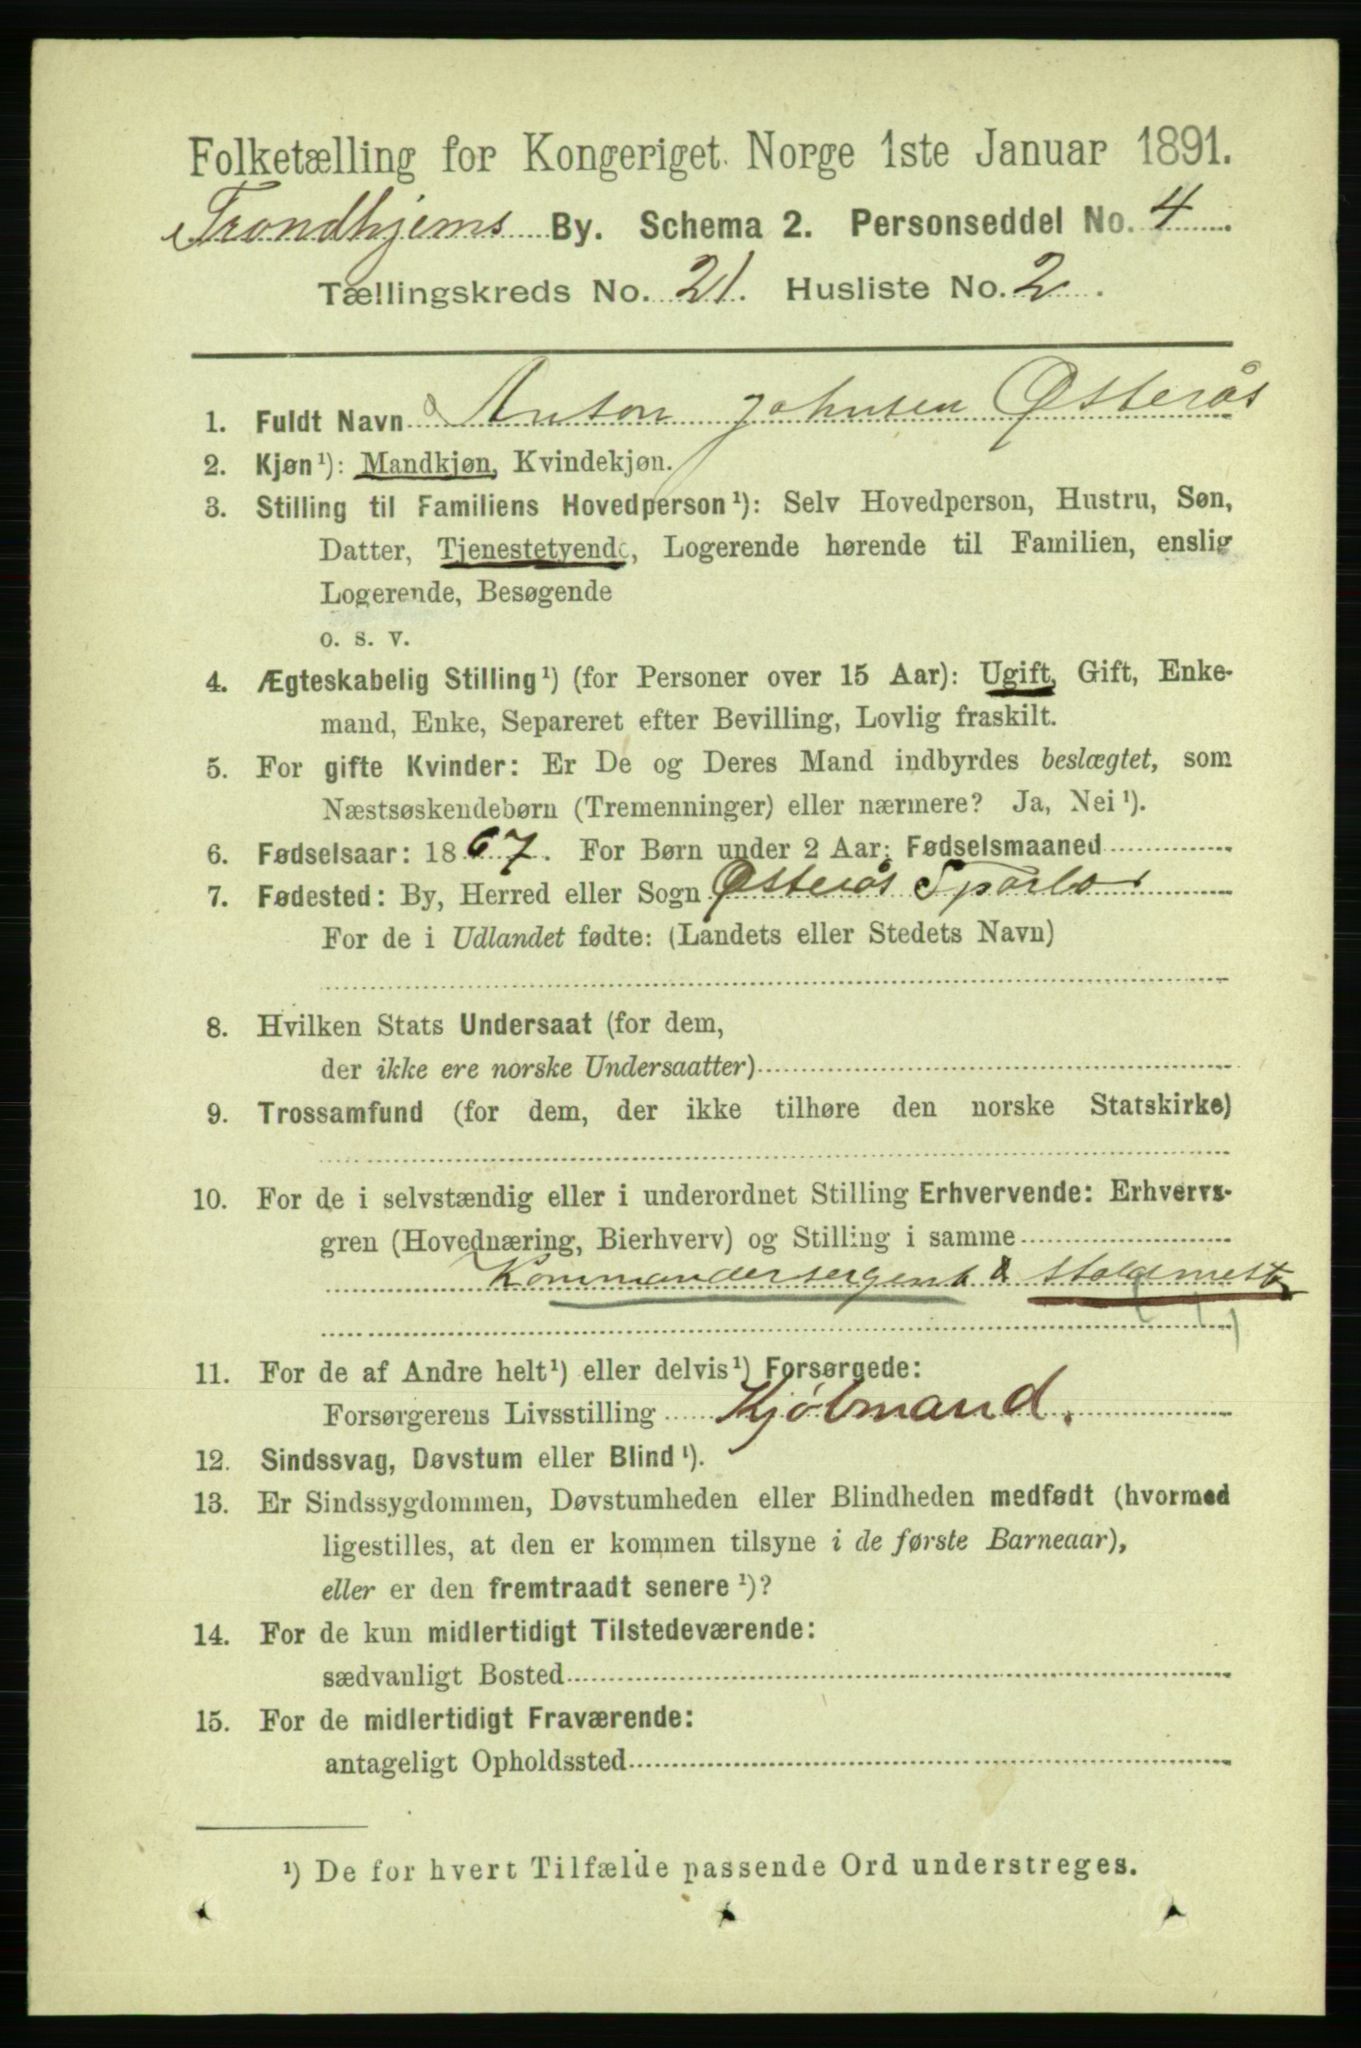 Folketælling for Kongeriget Norge 1ste Januar 1891.
Trondhjems By. Schema 2. Personseddel No. 4
Tællingskreds No. 21. Husliste No. 2.
1. Fuldt Navn Anton Johnsen Østerås
2. Kjøn¹): Mandkjøn, Kvindekjøn.
3. Stilling til Familiens Hovedperson¹): Selv Hovedperson, Hustru, Søn,
Datter, Tjenestetyende, Logerende hørende til Familien, enslig
Logerende, Besøgende
o. s. v.
4. Ægteskabelig Stilling¹) (for Personer over 15 Aar): Ugift, Gift, Enke-
mand, Enke, Separeret efter Bevilling, Lovlig fraskilt.
5. For gifte Kvinder: Er De og Deres Mand indbyrdes beslægtet, som
Næstsøskendebørn (Tremenninger) eller nærmere? Ja, Nei¹).
6. Fødselsaar: 1867. For Børn under 2 Aar: Fødselsmaaned
7. Fødested: By, Herred eller Sogn Østerås Sparbo
For de i Udlandet fødte: (Landets eller Stedets Navn)
8. Hvilken Stats Undersaat (for dem,
der ikke ere norske Undersaatter)
9. Trossamfund (for dem, der ikke tilhøre den norske Statskirke)
10. For de i selvstændig eller i underordnet Stilling Erhvervende: Erhvervs-
gren (Hovednæring, Bierhverv) og Stilling i samme
Kommandersergent &
11. For de af Andre helt¹) eller delvis¹) Forsørgede:
Forsørgerens Livsstilling Kjøbmand.
12. Sindssvag, Døvstum eller Blind¹).
13. Er Sindssygdommen, Døvstumheden eller Blindheden medfødt (hvormed
ligestilles, at den er kommen tilsyne i de første Barneaar),
eller er den fremtraadt senere¹)?
14. For de kun midlertidigt Tilstedeværende:
sædvanligt Bosted
15. For de midlertidigt Fraværende:
antageligt Opholdssted
¹) De for hvert Tilfælde passende Ord understreges.